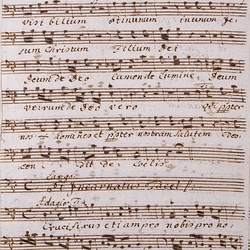 visibilium et in unum in unum
sum Christum Filium Dei
Deum de Deo Lumen de Lumine Deum
verum de Deo vero
nos homines et propter nostram salutem
Coelis
Largo
Incarnatus Tacet
Adagio
Crucifixus etiam pro nobis pro no: